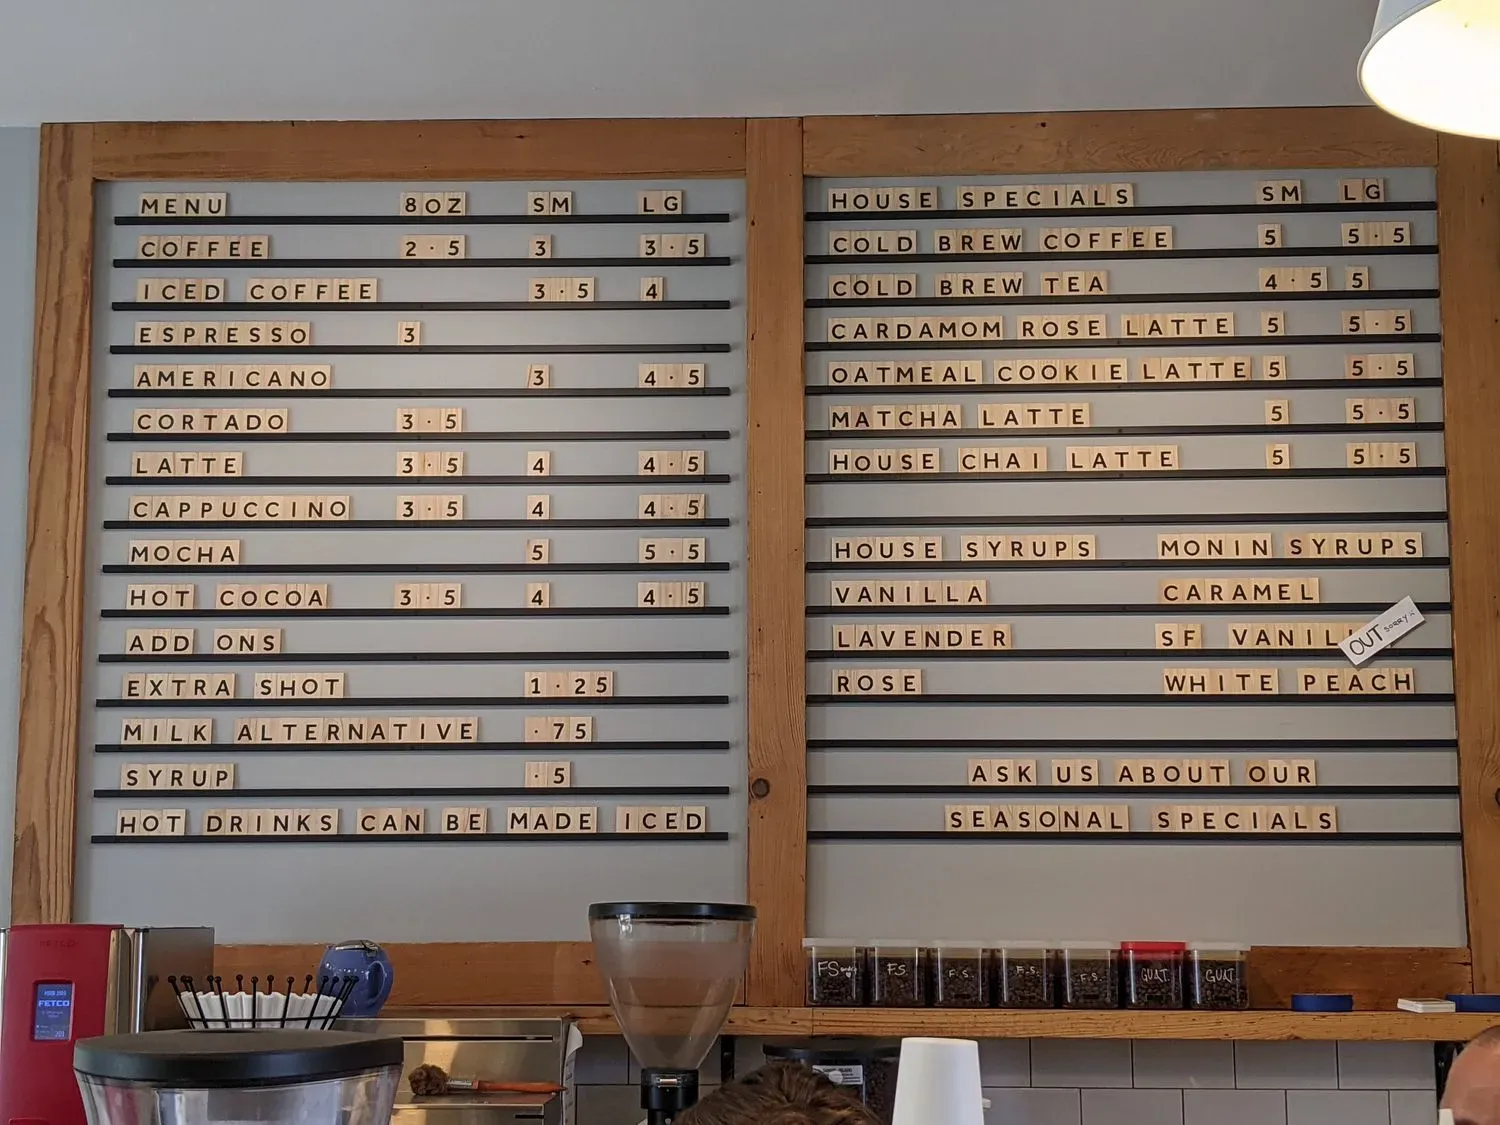 MENU 8OZ SM LG
COFFEE 2·5 3 3·5
ICED COFFEE 3·5 4
ESPRESSO 3
AMERICANO 3 4·5
CORTADO 3·5
LATTE 3·5 4 4·5
CAPPUCCINO 3·5 4 4·5
MOCHA 5 5·5
HOT COCOA 3·5 4 4·5
ADD ONS
EXTRA SHOT 1·25
MILK ALTERNATIVE ·75
SYRUP ·5
HOT DRINKS CAN BE MADE ICED
HOUSE SPECIALS SM LG
COLD BREW COFFEE 5 5·5
COLD BREW TEA 4·5 5
CARDAMOM ROSE LATTE 5 5·5
OATMEAL COOKIE LATTE 5 5·5
MATCHA LATTE 5 5·5
HOUSE CHAI LATTE 5 5·5
HOUSE SYRUPS MONIN SYRUPS
VANILLA CARAMEL
LAVENDER SF VANIL OUT SORRY
ROSE WHITE PEACH
ASK US ABOUT OUR
SEASONAL SPECIALS
FS F.S. F.S. F.S. F.S. GUAT. GUAT.
FETCO